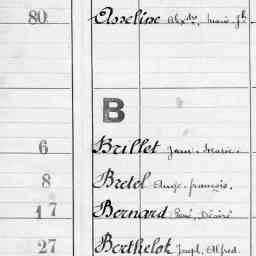 80 Asseline Alexdre, Marie Jh
B
6 Brillet Jean-Marie
8 Bretel Ange-françois.
17 Bernard René, Désiré
27 Berthelot Joseph, Alfred